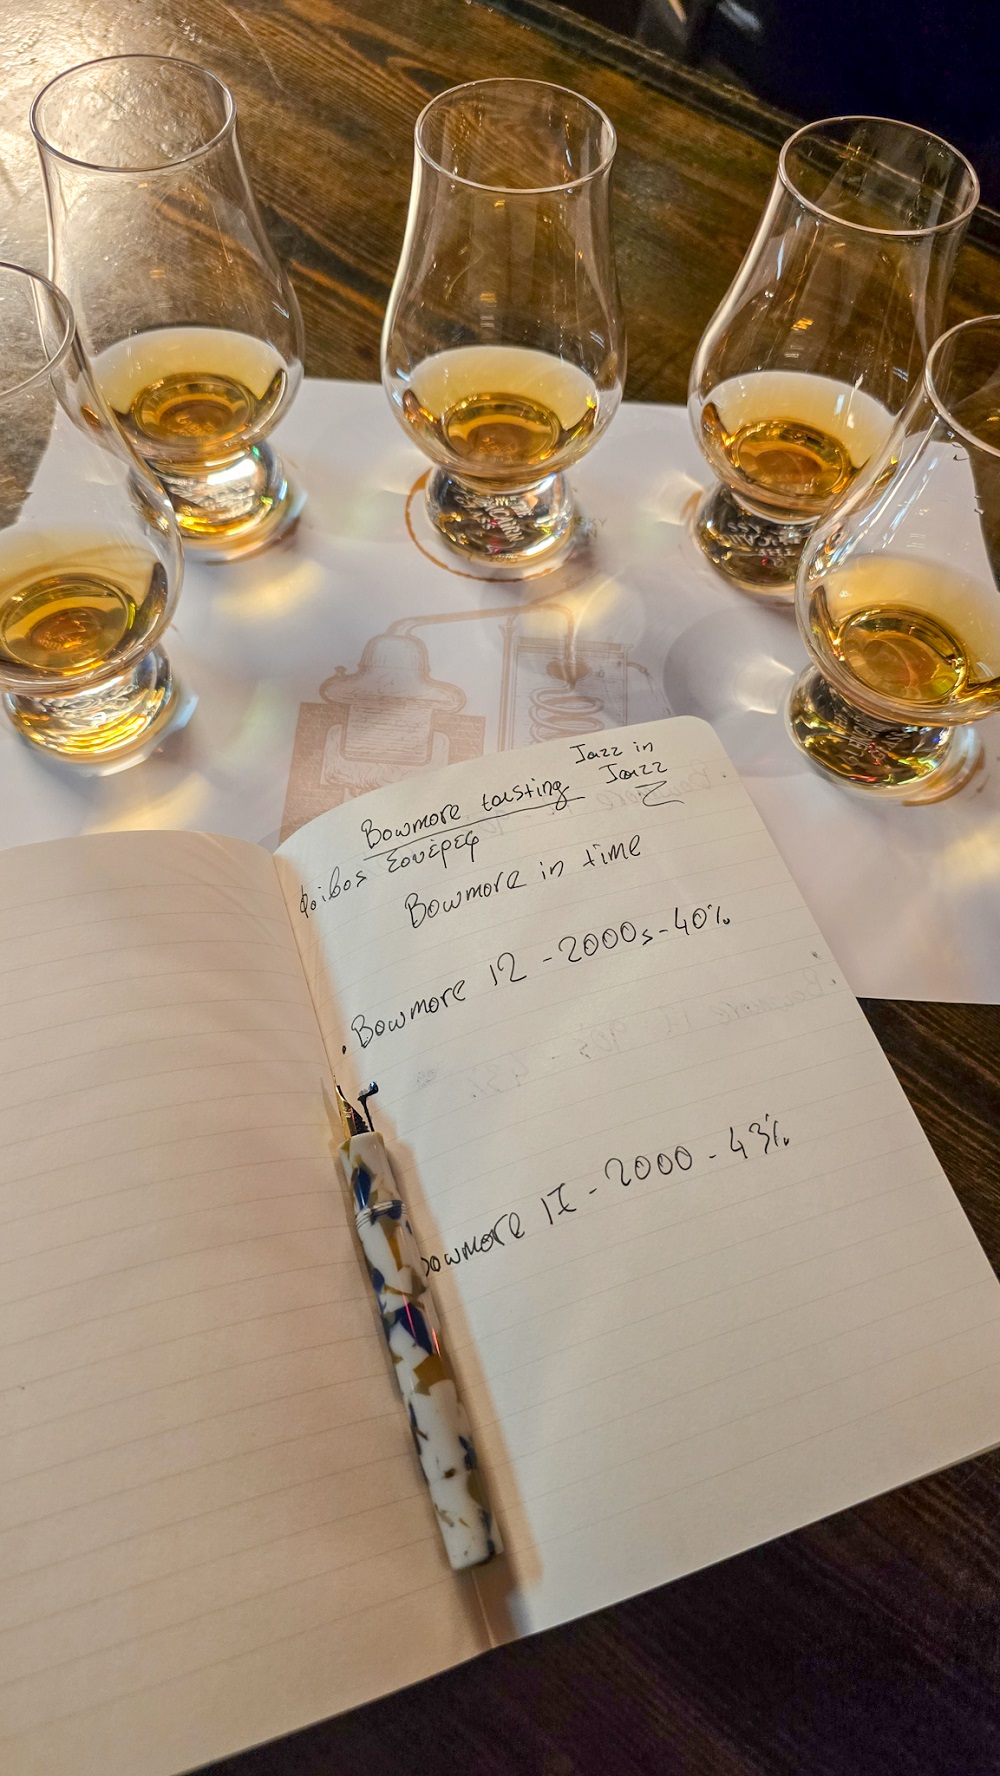 Jazz in
Jazz
Bowmore tasting
Φοίβος Σουέρεφ
Bowmore in time
· Bowmore 12 - 2000s - 40%
Bowmore 17 - 2000 - 43%
THE
GLENCAIRN